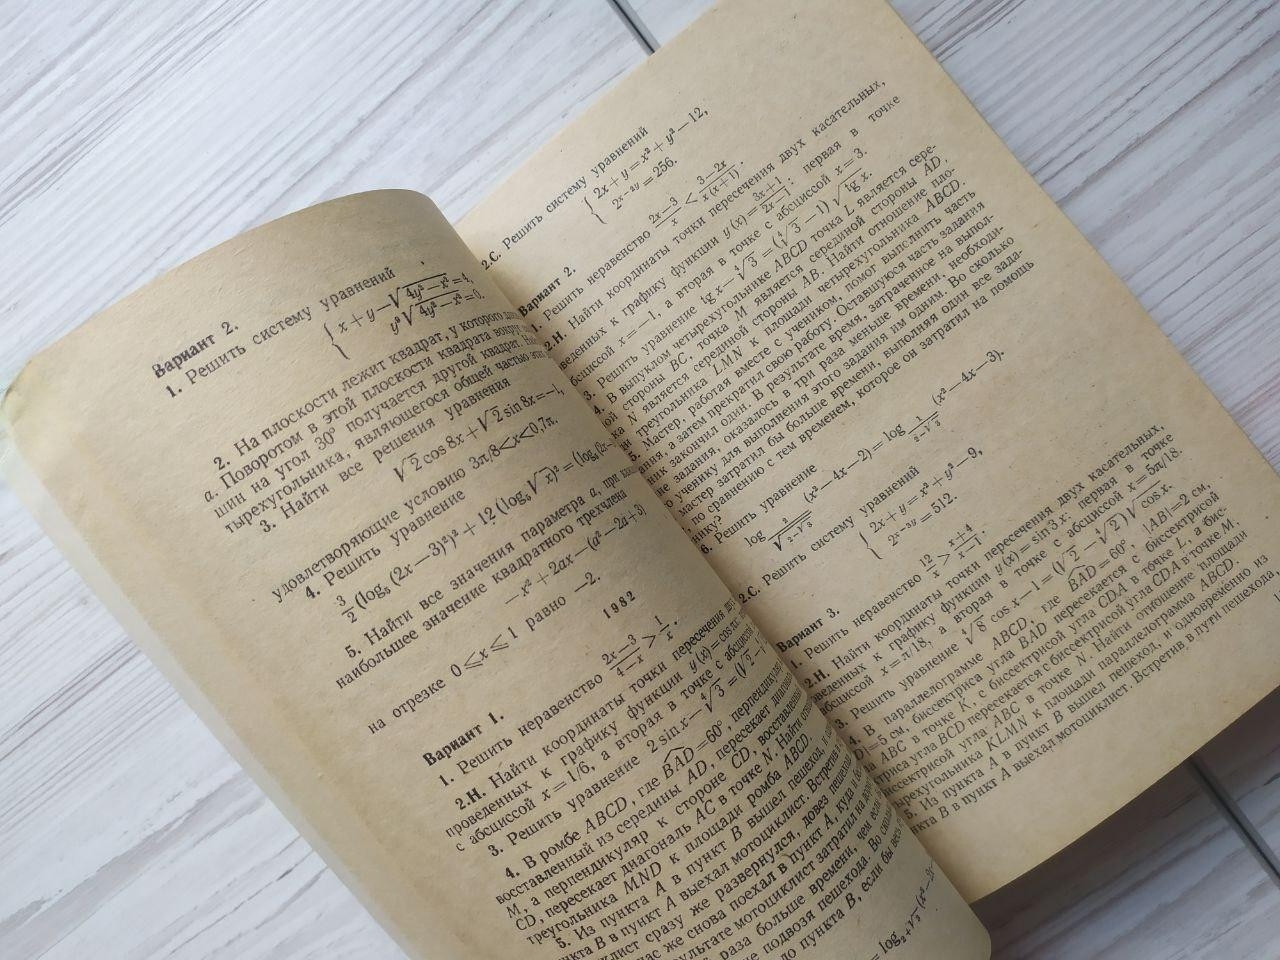 Вариант 2.
1. Решить систему уравнений
{ x+y−√(4y²−x²)=4,
y²√(4y²−x²)=0.
2. На плоскости лежит квадрат, у которого
a. Поворотом в этой плоскости квадрата вокруг
шин на угол 30° получается другой квадрат.
тырехугольника, являющегося общей частью этих
3. Найти все решения уравнения
√2 cos 8x+√2 sin 8x=−1,
удовлетворяющие условию 3π/8<x<0,7π.
4. Решить уравнение
3/2 (log₅ (2x−3)²)²+12 (log₅ √x)²=(log₅ (2x−
5. Найти все значения параметра a, при
наибольшее значение квадратного трехчлена
−x²+2ax−(a²−2a+3)
на отрезке 0⩽x⩽1 равно −2.
1982
Вариант 1.
1. Решить неравенство (2x−3)/(4−x) > 1/x.
2.Н. Найти координаты точки пересечения
проведенных к графику функции y(x)=cos
с абсциссой x=1/6, а вторая в точке с абсциссой
3. Решить уравнение 2 sin x−⁴√3=(⁴√
4. В ромбе ABCD, где BAD=60°
восставленный из середины AD, пересекает
M, а перпендикуляр к стороне CD, восставленный
CD, пересекает диагональ AC в точке N. Найти
треугольника MND к площади ромба ABCD.
5. Из пункта A в пункт B вышел пешеход,
пункта B в пункт A выехал мотоциклист. Встретив
клист сразу же развернулся, довез пешехода
час же снова поехал в пункт A, куда и
результате мотоциклист затратил на
раза больше времени, чем если
не подвозя пешехода. Во
до пункта B, если бы
=log₂₊√₃ (x²−2x
2.С. Решить систему уравнений
{ 2x+y=x²+y²−12,
2^(x−2y)=256.
Вариант 2.
1. Решить неравенство (2x−3)/x < (3−2x)/(x(x+1)).
2.Н. Найти координаты точки пересечения двух касательных,
проведенных к графику функции y(x)=(3x+1)/(2x−1): первая в точке
абсциссой x=−1, а вторая в точке с абсциссой x=3.
3. Решить уравнение tg x−⁴√3=(⁴√3−1)√tg x.
4. В выпуклом четырехугольнике ABCD точка L является сере-
стороны BC, точка M является серединой стороны AD,
N является серединой стороны AB. Найти отношение пло-
треугольника LMN к площади четырехугольника ABCD.
5. Мастер, работая вместе с учеником, помог выполнить часть
ания, а затем прекратил свою работу. Оставшуюся часть задания
ник закончил один. В результате время, затраченное на выпол-
ние задания, оказалось в три раза меньше времени, необходи-
ученику для выполнения этого задания им одним. Во сколько
мастер затратил бы больше времени, выполняя один все зада-
по сравнению с тем временем, которое он затратил на помощь
нику?
6. Решить уравнение
(x²−4x−2)=log (x²−4x−3).
2.С. Решить систему уравнений
{ 2x+y=x²+y²−9,
2^(x−2y)=512.
Вариант 3.
1. Решить неравенство 12/x > (x+4)/(x−1).
2.Н. Найти координаты точки пересечения двух касательных,
проведенных к графику функции y(x)=sin 3x: первая в точке
абсциссой x=π/18, а вторая в точке с абсциссой x=5π/18.
3. Решить уравнение ⁴√8 cos x−1=(⁴√2−√2)√cos x.
4. В параллелограмме ABCD, где BAD=60°, |AB|=2 см,
=5 см, биссектриса угла BAD пересекается с биссектрисой
ABC в точке K, с биссектрисой угла CDA в точке L, а бис-
триса угла BCD пересекается с биссектрисой угла CDA в точке M,
биссектрисой угла ABC в точке N. Найти отношение площади
четырехугольника KLMN к площади параллелограмма ABCD.
5. Из пункта A в пункт B вышел пешеход, и одновременно из
пункта B в пункт A выехал мотоциклист. Встретив в пути пешехода,